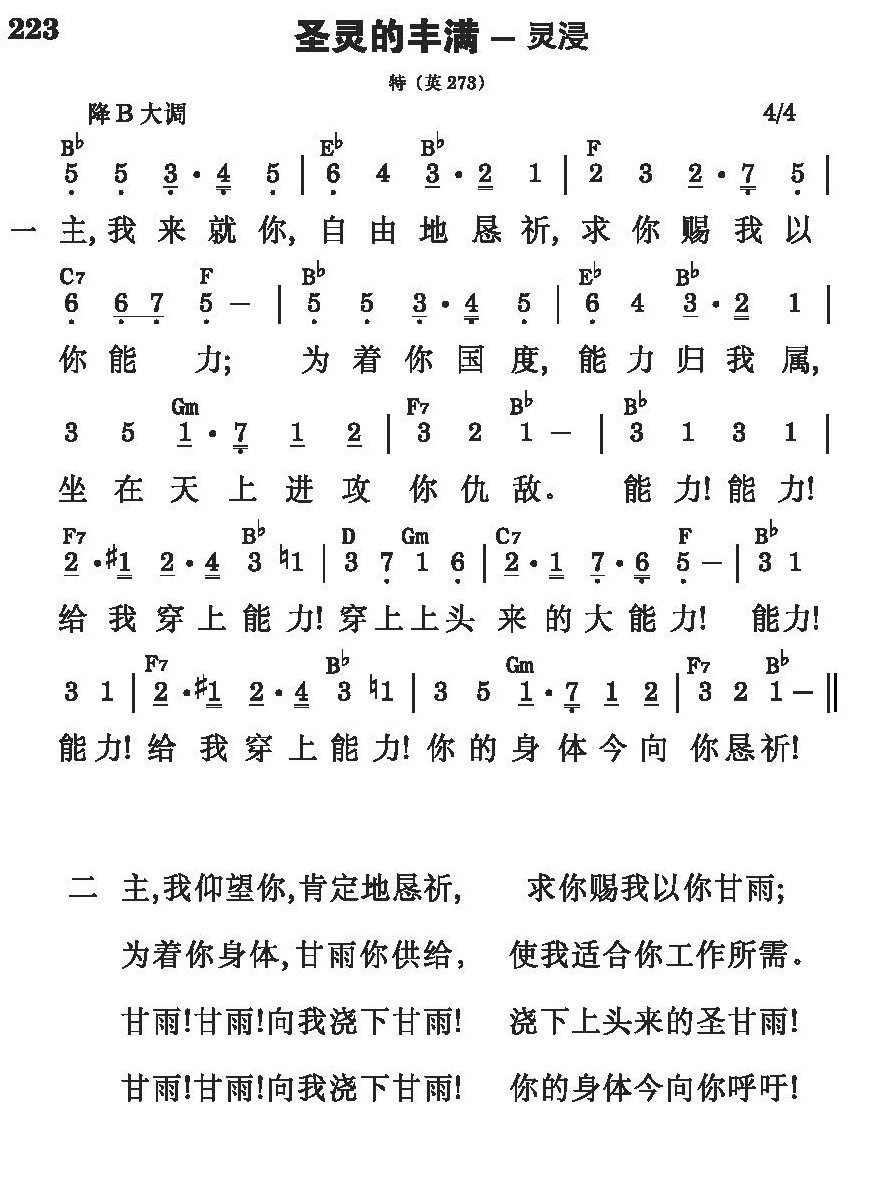 223
圣灵的丰满 — 灵浸
特（英 273）
降 B 大调 4/4
B♭ E♭ B♭ F
5 5 3 · 4 5 | 6 4 3 · 2 1 | 2 3 2 · 7 5 |
一 主, 我 来 就 你, 自 由 地 恳 祈, 求 你 赐 我 以
C7 F B♭ E♭ B♭
6 6 7 5 — | 5 5 3 · 4 5 | 6 4 3 · 2 1 |
你 能 力; 为 着 你 国 度, 能 力 归 我 属,
Gm F7 B♭ B♭
3 5 1 · 7 1 2 | 3 2 1 — | 3 1 3 1 |
坐 在 天 上 进 攻 你 仇 敌。 能 力! 能 力!
F7 B♭ D Gm C7 F B♭
2 · ♯1 2 · 4 3 ♮1 | 3 7 1 6 | 2 · 1 7 · 6 5 — | 3 1
给 我 穿 上 能 力! 穿 上 上 头 来 的 大 能 力! 能 力!
F7 B♭ Gm F7 B♭
3 1 | 2 · ♯1 2 · 4 3 ♮1 | 3 5 1 · 7 1 2 | 3 2 1 — ‖
能 力! 给 我 穿 上 能 力! 你 的 身 体 今 向 你 恳 祈!
二 主,我仰望你,肯定地恳祈, 求你赐我以你甘雨;
为着你身体,甘雨你供给, 使我适合你工作所需。
甘雨!甘雨!向我浇下甘雨! 浇下上头来的圣甘雨!
甘雨!甘雨!向我浇下甘雨! 你的身体今向你呼吁!